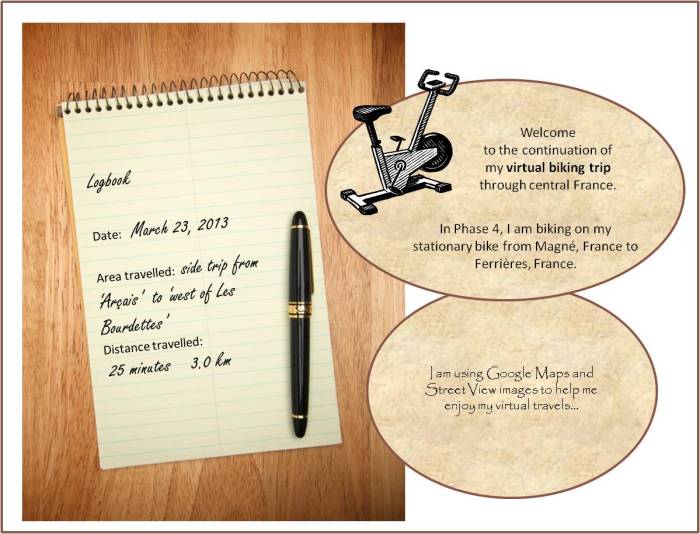 Logbook
Date: March 23, 2013
Area travelled: side trip from
'Arçais' to 'west of Les
Bourdettes'
Distance travelled:
25 minutes 3.0 km
Welcome
to the continuation of
my virtual biking trip
through central France.
In Phase 4, I am biking on my
stationary bike from Magné, France to
Ferrières, France.
I am using Google Maps and
Street View images to help me
enjoy my virtual travels...